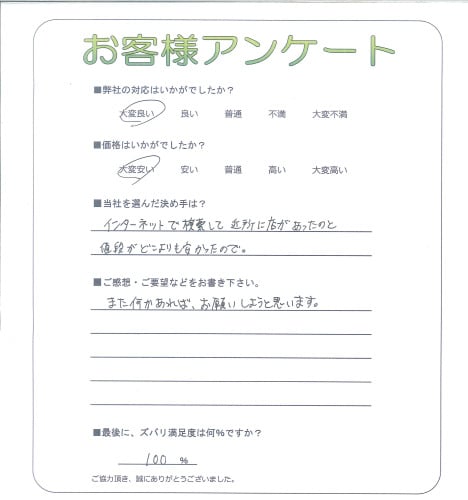 お客様アンケート
■弊社の対応はいかがでしたか?
大変良い 良い 普通 不満 大変不満
■価格はいかがでしたか?
大変安い 安い 普通 高い 大変高い
■当社を選んだ決め手は?
インターネットで検索して近所に店があったのと
値段がどこよりも安かったので。
■ご感想・ご要望などをお書き下さい。
また何かあれば、お願いしようと思います。
■最後に、ズバリ満足度は何%ですか?
100 %
ご協力頂き、誠にありがとうございました。